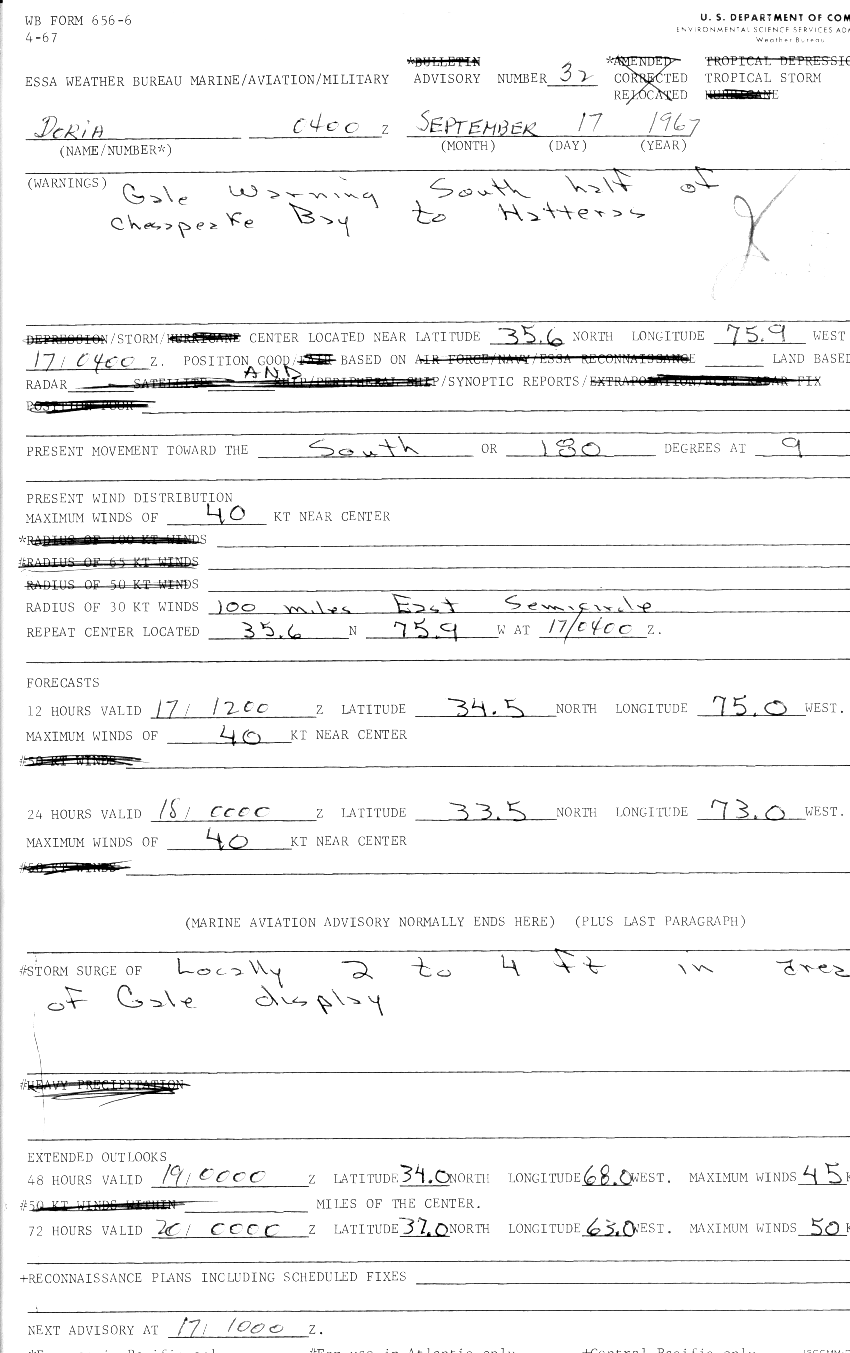 WB FORM 656-6
4-67
U. S. DEPARTMENT OF COM
ENVIRONMENTAL SCIENCE SERVICES AD
Weather Bureau
*BULLETIN *AMENDED TROPICAL DEPRESSIO
ESSA WEATHER BUREAU MARINE/AVIATION/MILITARY ADVISORY NUMBER 32 CORRECTED TROPICAL STORM
RELOCATED HURRICANE
DORIA 0400 Z SEPTEMBER 17 1967
(NAME/NUMBER*) (MONTH) (DAY) (YEAR)
(WARNINGS) Gale Warning South half of
Chesapeake Bay to Hatteras
DEPRESSION/STORM/HURRICANE CENTER LOCATED NEAR LATITUDE 35.6 NORTH LONGITUDE 75.9 WEST
17/0400 Z. POSITION GOOD/FAIR BASED ON AIR FORCE/NAVY/ESSA RECONNAISSANCE LAND BASE
RADAR SATELLITE AND SHIP/PERIPHERAL SHIP/SYNOPTIC REPORTS/EXTRAPOLATION/ACFT RADAR FIX
PRESENT MOVEMENT TOWARD THE South OR 180 DEGREES AT 9
PRESENT WIND DISTRIBUTION
MAXIMUM WINDS OF 40 KT NEAR CENTER
*RADIUS OF 100 KT WINDS
#RADIUS OF 65 KT WINDS
RADIUS OF 50 KT WINDS
RADIUS OF 30 KT WINDS 100 miles East Semicircle
REPEAT CENTER LOCATED 35.6 N 75.9 W AT 17/0400 Z.
FORECASTS
12 HOURS VALID 17/ 1200 Z LATITUDE 34.5 NORTH LONGITUDE 75.0 WEST.
MAXIMUM WINDS OF 40 KT NEAR CENTER
#50 KT WINDS
24 HOURS VALID 18/ 0000 Z LATITUDE 33.5 NORTH LONGITUDE 73.0 WEST.
MAXIMUM WINDS OF 40 KT NEAR CENTER
#50 KT WINDS
(MARINE AVIATION ADVISORY NORMALLY ENDS HERE) (PLUS LAST PARAGRAPH)
#STORM SURGE OF Locally 2 to 4 ft in area
of Gale display
#HEAVY PRECIPITATION
EXTENDED OUTLOOKS
48 HOURS VALID 19/0000 Z LATITUDE 34.0 NORTH LONGITUDE 68.0 WEST. MAXIMUM WINDS 45 K
#50 KT WINDS WITHIN MILES OF THE CENTER.
72 HOURS VALID 20/ 0000 Z LATITUDE 37.0 NORTH LONGITUDE 63.0 WEST. MAXIMUM WINDS 50 K
+RECONNAISSANCE PLANS INCLUDING SCHEDULED FIXES
NEXT ADVISORY AT 17/ 1000 Z.